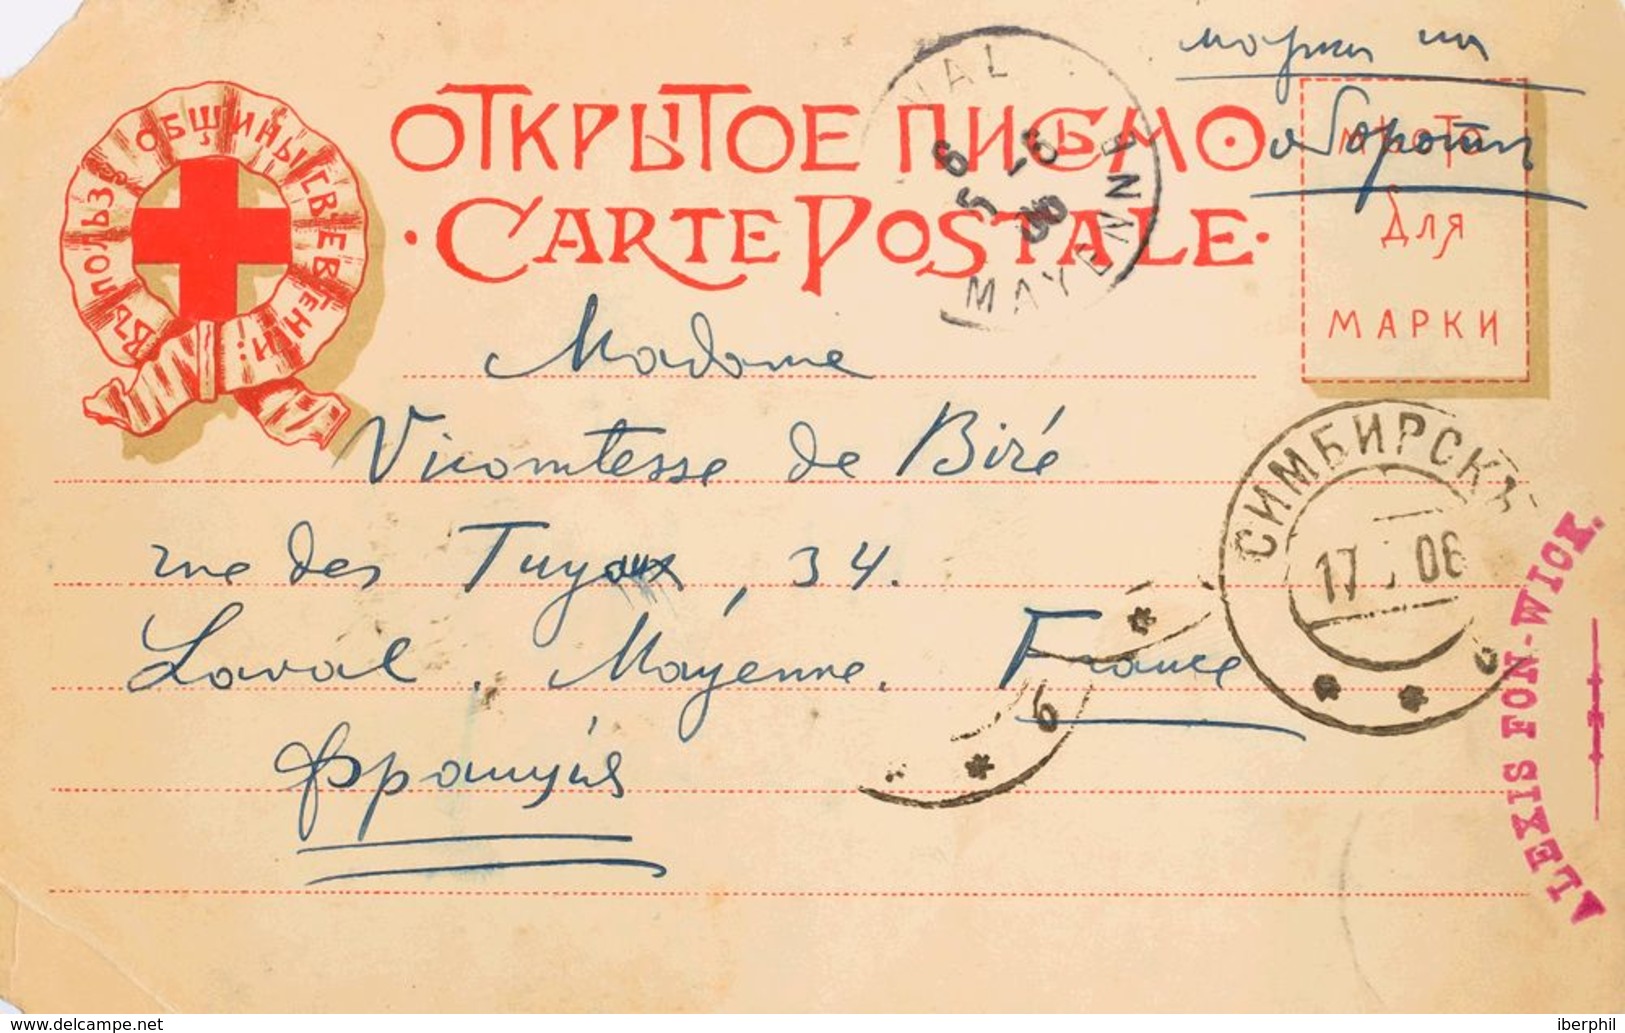 марки на
обороте
ОТКРЫТОЕ ПИСЬМО
CARTE POSTALE
ВЪ ПОЛЬЗУ ОБЩИНЫ СВ. ЕВГЕНІИ.
МѢСТО
ДЛЯ
МАРКИ
VAL
6
5 -6
06
MAYENNE
Madame
Vicomtesse de Biré
rue des Tuyaux, 34.
Laval, Mayenne, France
Франція
СИМБИРСКЪ
17 06
б
б
ALEXIS FON-WICK.
delcampe.net
iberphil